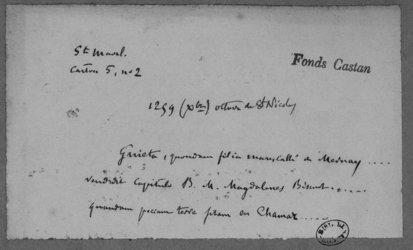 Ste Magd.
Carton 5, no 2
Fonds Castan
1259 (Xbre) octave de St Nicolas
Guieta, quondam filia marescalli de Mesnay ....
vendidit capitulo B. M. Magdalenes Bisunt. .....
quamdam peciam terre sitam en Chamar .....